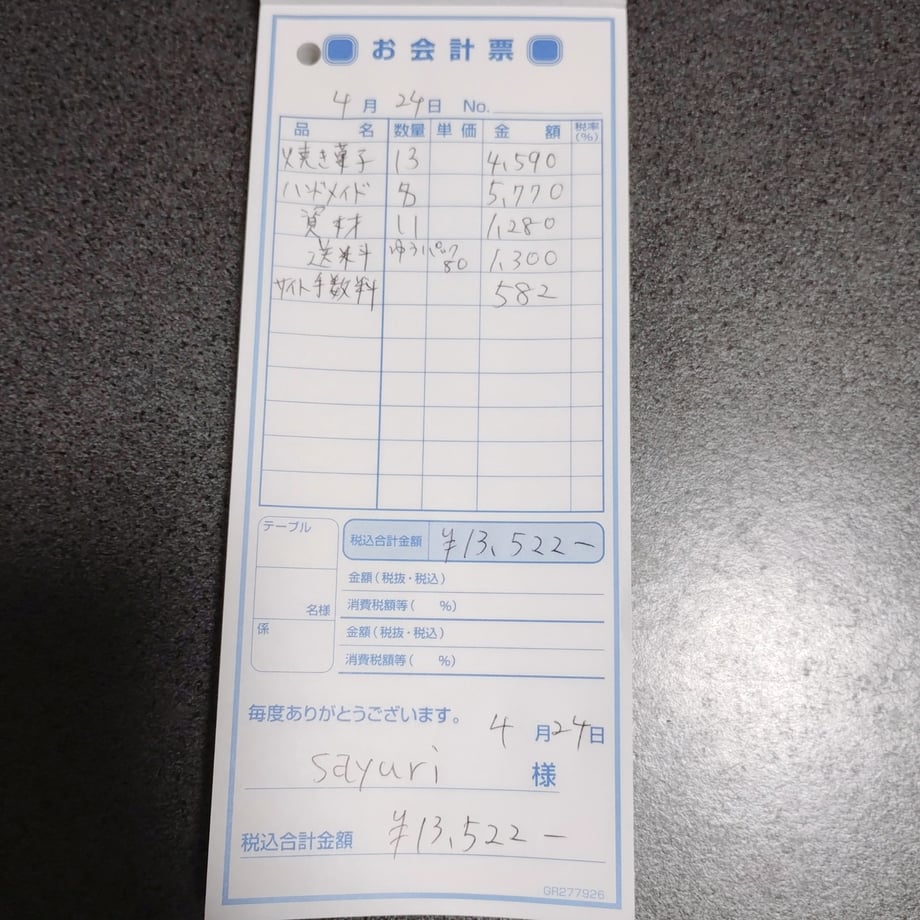 お会計票
4月24日 No.
品名 数量 単価 金額 税率(%)
焼き菓子 13 4,590
ハンドメイド 8 5,770
資材 11 1,280
送料 ゆうパック80 1,300
サイト手数料 582
テーブル
税込合計金額 ¥13,522-
金額(税抜・税込)
名様
消費税額等( %)
係
金額(税抜・税込)
消費税額等( %)
毎度ありがとうございます。
4月24日
sayuri 様
税込合計金額 ¥13,522-
GR277926